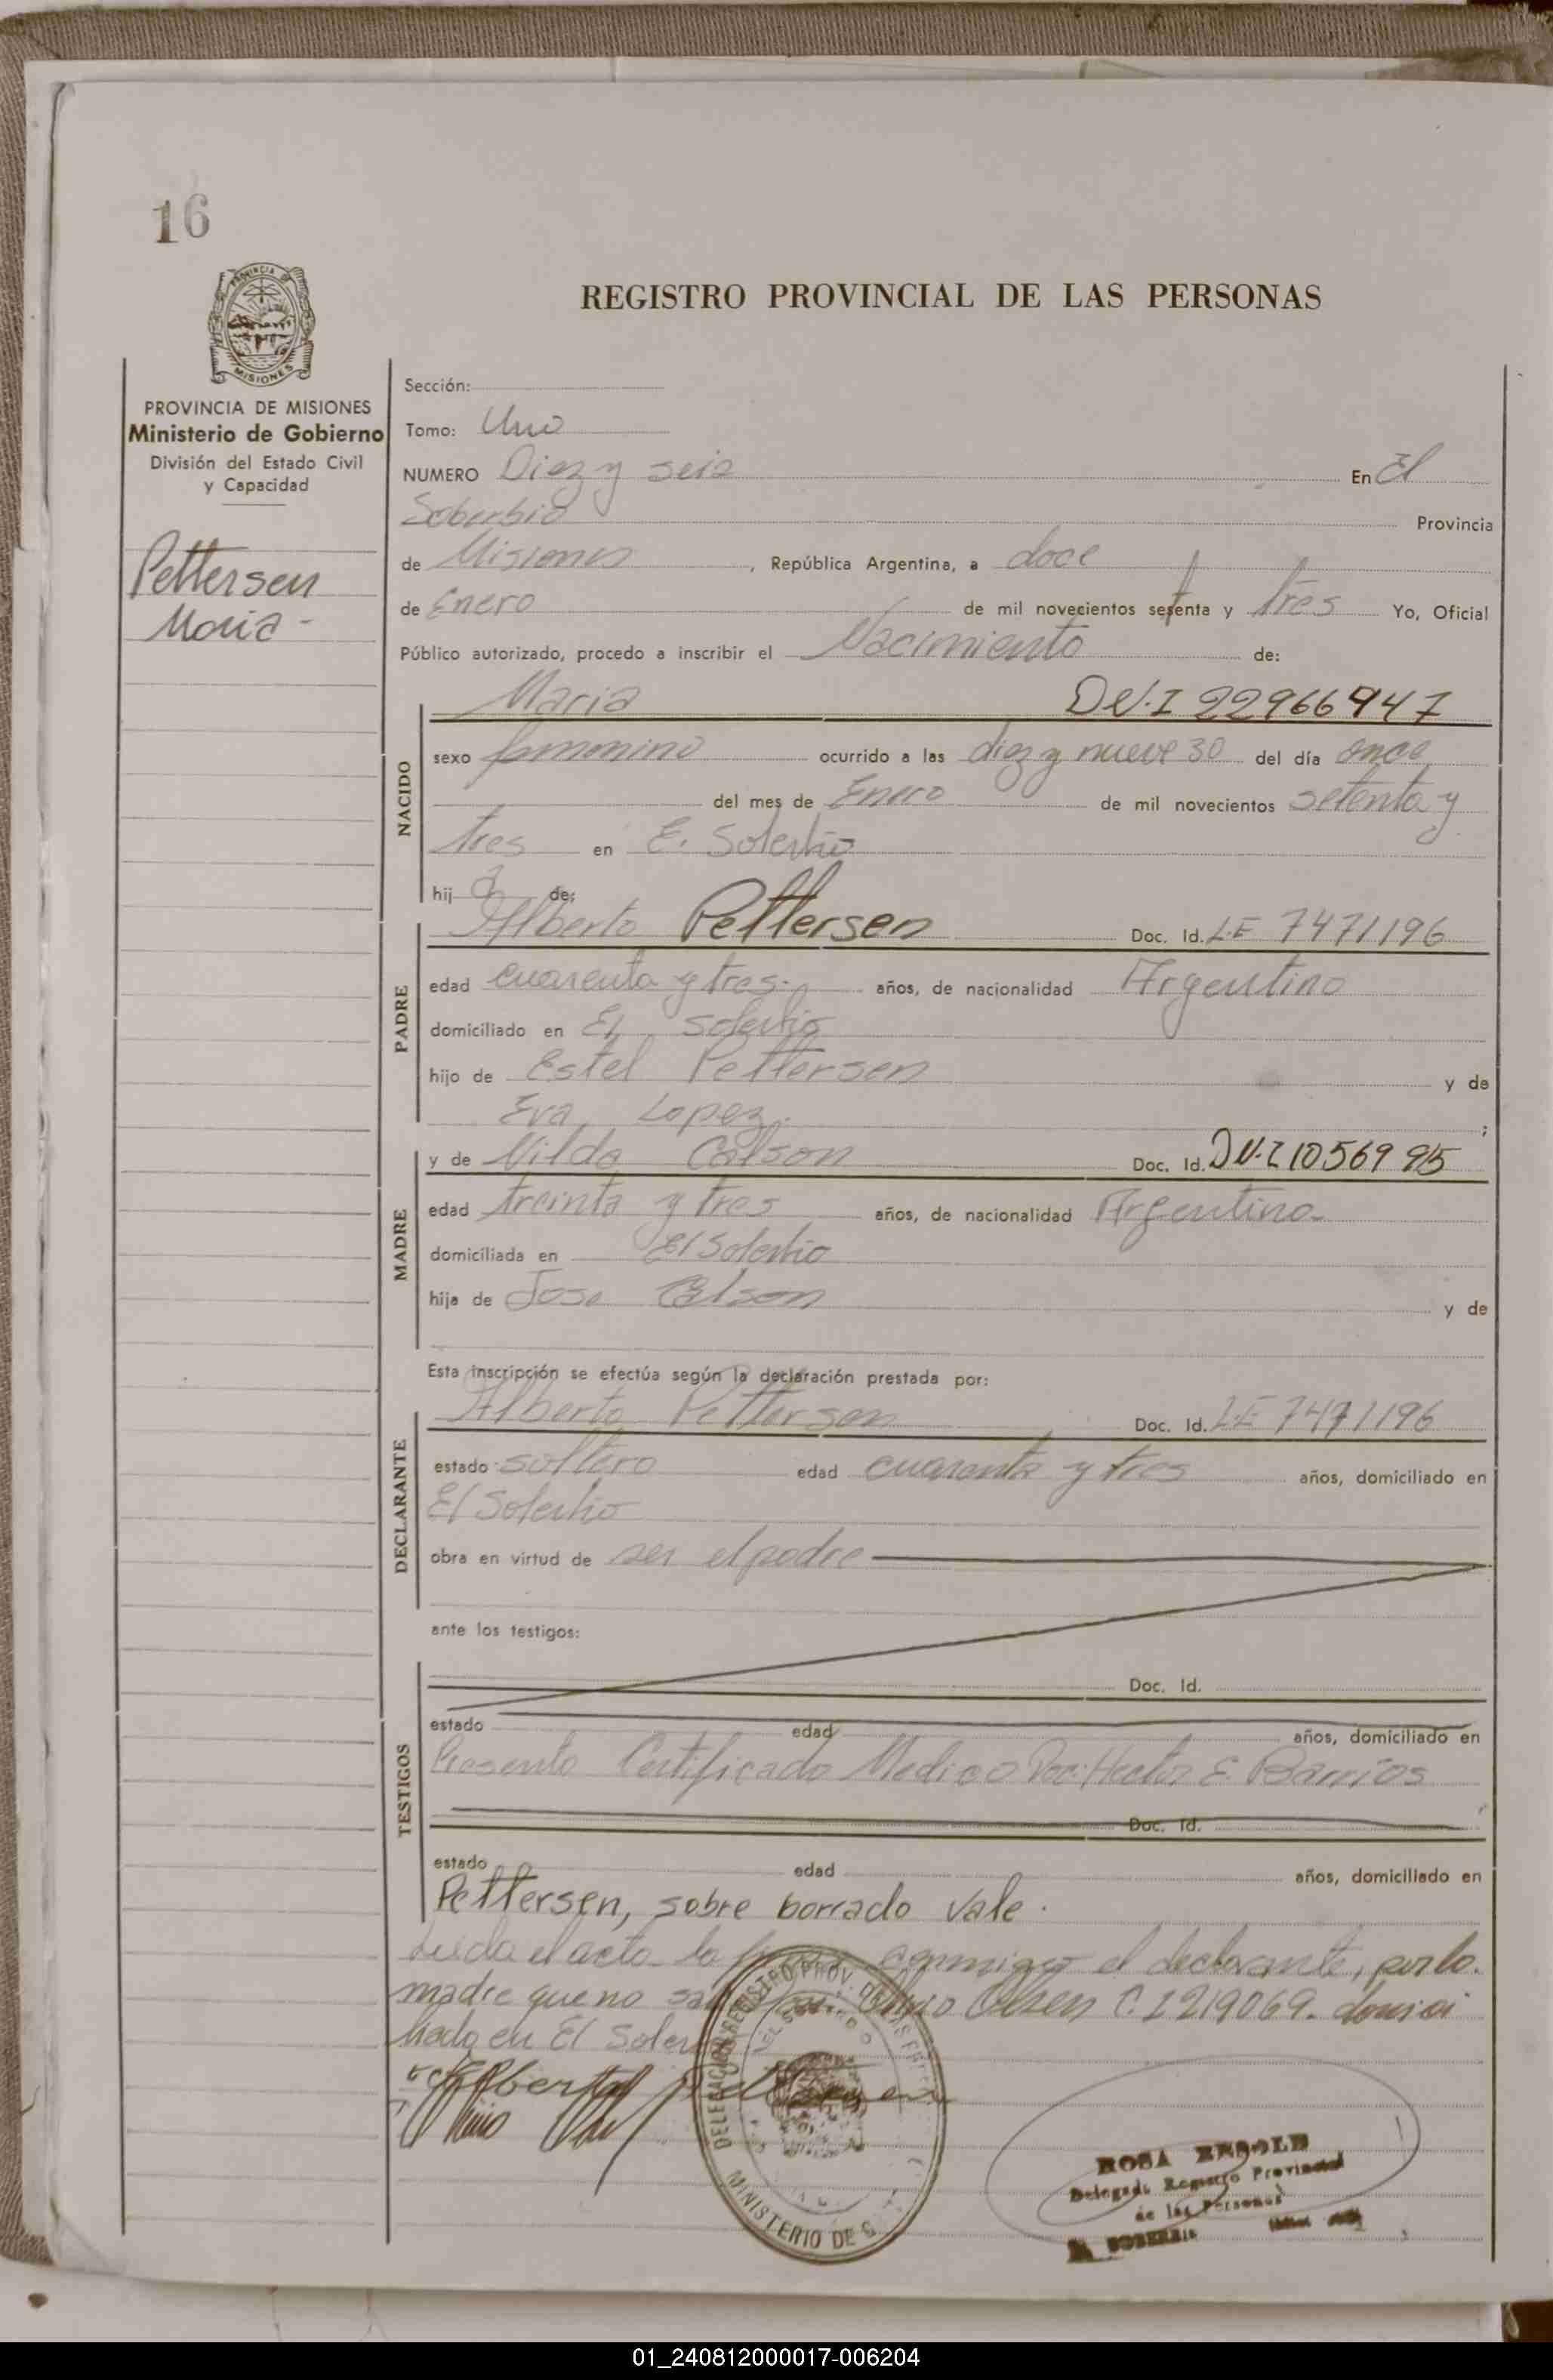 16
PROVINCIA DE
MISIONES
REGISTRO PROVINCIAL DE LAS PERSONAS
PROVINCIA DE MISIONES
Ministerio de Gobierno
División del Estado Civil
y Capacidad
Pettersen
Maria -
Sección:
Tomo: Uno
NUMERO Diez y seis En El
Soberbio Provincia
de Misiones, República Argentina, a doce
de Enero de mil novecientos setenta y tres Yo, Oficial
Público autorizado, procedo a inscribir el Nacimiento de:
NACIDO
Maria DN.I 22966947
sexo femmenino ocurrido a las diez y nueve 30 del día once
del mes de Enero de mil novecientos setenta y
tres en E. Soberbio
hij a de:
PADRE
Alberto Pettersen Doc. Id. L.E 7471196
edad cuarenta y tres.- años, de nacionalidad Argentino
domiciliado en El Soberbio
hijo de Estel Pettersen y de
Eva Lopez. ;
MADRE
y de Nilda Calson Doc. Id. DN.I 10569 915
edad treinta y tres años, de nacionalidad Argentina
domiciliada en El Soberbio
hija de Jose Calson y de
Esta inscripción se efectúa según la declaración prestada por:
DECLARANTE
Alberto Pettersen Doc. Id. L.E 7471196
estado soltero edad cuarenta y tres años, domiciliado en
El Soberbio
obra en virtud de ser el padre
ante los testigos:
TESTIGOS
Doc. Id.
estado edad años, domiciliado en
Presento Certificado Medico Doc: Hector E. Barrios
Doc. Id.
estado edad años, domiciliado en
Pettersen, sobre borrado vale.
Leida el acta la conmigo el declarante, por la
madre que no Olsen C. 1219069. domici
liado en El
Alberto
DELEGACION REGISTRO PROV. DE LAS
MINISTERIO DE G
ROSA
Delegada Registro Provincial
de las Personas
SOBERBIO
01_240812000017-006204